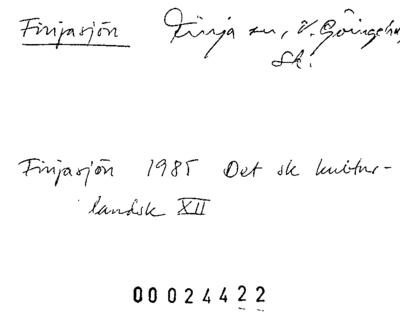 Finjasjön Finja sn, V. Göinge hd,
Sk.
Finjasjön 1985 Det sk kultur-
landsk XII
00024422